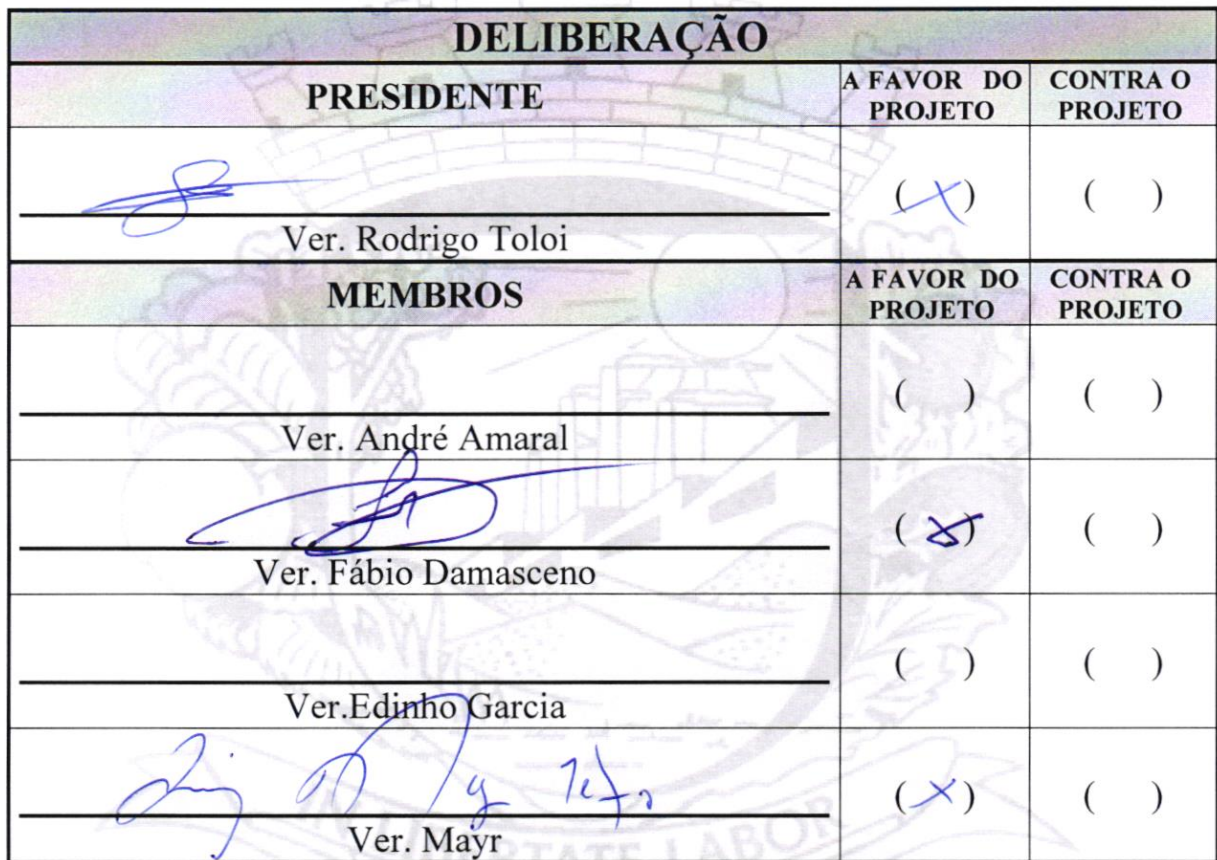 DELIBERAÇÃO
PRESIDENTE
A FAVOR DO
PROJETO
CONTRA O
PROJETO
(X)
( )
Ver. Rodrigo Toloi
MEMBROS
A FAVOR DO
PROJETO
CONTRA O
PROJETO
( )
( )
Ver. André Amaral
(X)
( )
Ver. Fábio Damasceno
( )
( )
Ver.Edinho Garcia
(X)
( )
Ver. Mayr
LABOR